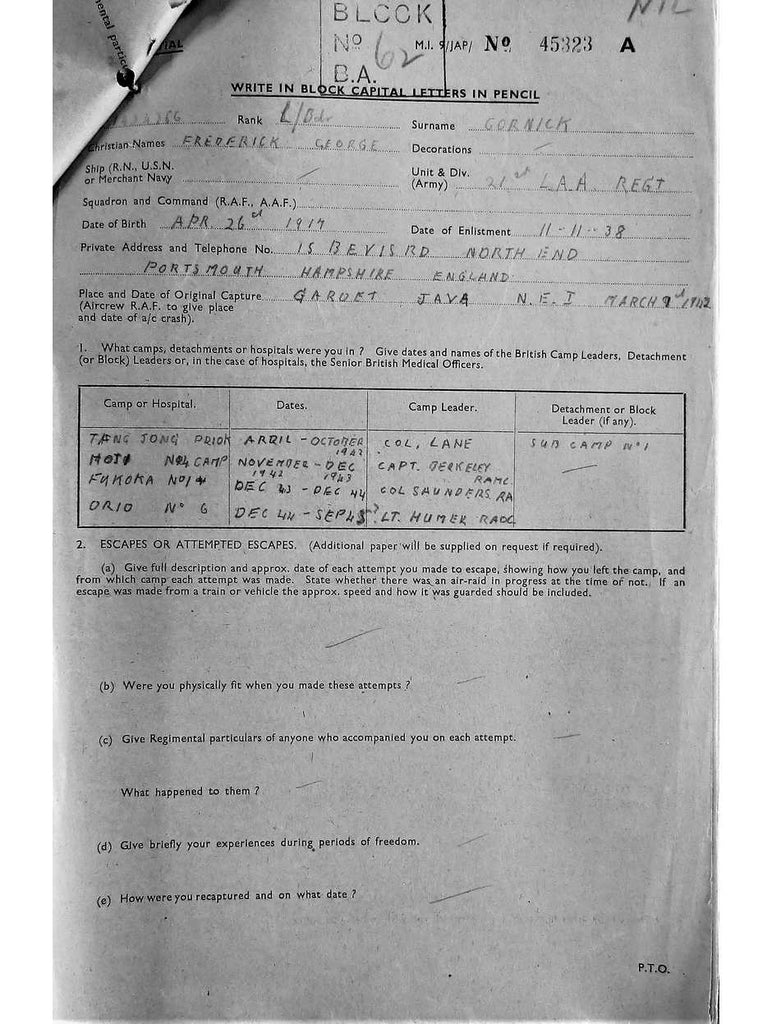 NIL
BLOCK
Nº 62 M.I. 9/JAP/ Nº 45323 A
B.A.
WRITE IN BLOCK CAPITAL LETTERS IN PENCIL
Rank L/Bdr Surname GORNICK
Christian Names FREDERICK GEORGE Decorations —
Ship (R.N., U.S.N. or Merchant Navy — Unit & Div. (Army) 21st L.A.A. REGT
Squadron and Command (R.A.F., A.A.F.)
Date of Birth APR 26d 1917 Date of Enlistment 11-11-38
Private Address and Telephone No. 15 BEVIS RD NORTH END
PORTSMOUTH HAMPSHIRE ENGLAND.
Place and Date of Original Capture GAROET JAVA N.E.I MARCH 1942
(Aircrew R.A.F. to give place
and date of a/c crash).
1. What camps, detachments or hospitals were you in ? Give dates and names of the British Camp Leaders, Detachment
(or Block) Leaders or, in the case of hospitals, the Senior British Medical Officers.
Camp or Hospital. Dates. Camp Leader. Detachment or Block Leader (if any).
TANG JONG PRIOK APRIL - OCTOBER 1942 COL, LANE SUB CAMP Nº 1
MOTI Nº4 CAMP NOVEMBER 1942 - DEC 1943 CAPT. BERKELEY RAMC —
FUKOKA Nº 14 DEC 43 - DEC 44 COL SAUNDERS RA
ORIO Nº 6 DEC 44 - SEP 45 LT. HUMEK RAOC
2. ESCAPES OR ATTEMPTED ESCAPES. (Additional paper will be supplied on request if required).
(a) Give full description and approx. date of each attempt you made to escape, showing how you left the camp, and
from which camp each attempt was made. State whether there was an air-raid in progress at the time of not. If an
escape was made from a train or vehicle the approx. speed and how it was guarded should be included.
—
(b) Were you physically fit when you made these attempts ? —
(c) Give Regimental particulars of anyone who accompanied you on each attempt. —
What happened to them ? —
(d) Give briefly your experiences during periods of freedom. —
(e) How were you recaptured and on what date ? —
P.T.O.